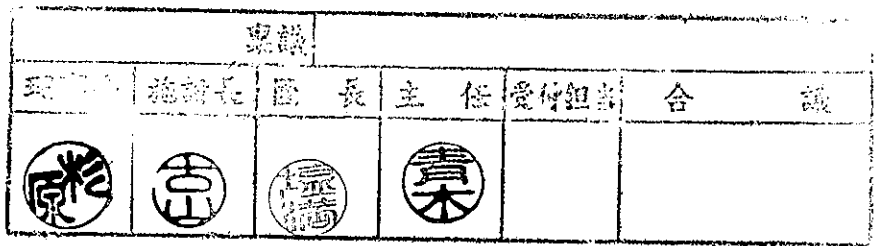 稟議
施設長 園長 主任 受付担当 合議
杉原 吉山 青木